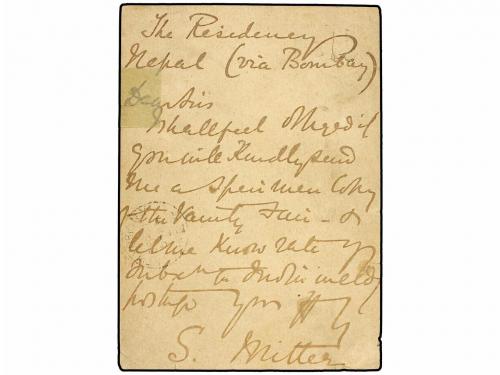 The Residency
Nepal (via Bombay)
Dear Sirs
I shall feel obliged if
you will kindly send
me a specimen Copy
of the Vanity Fair - &
let me know rate of
Subsn to India includg
postage Yours ffy
S. Mitter